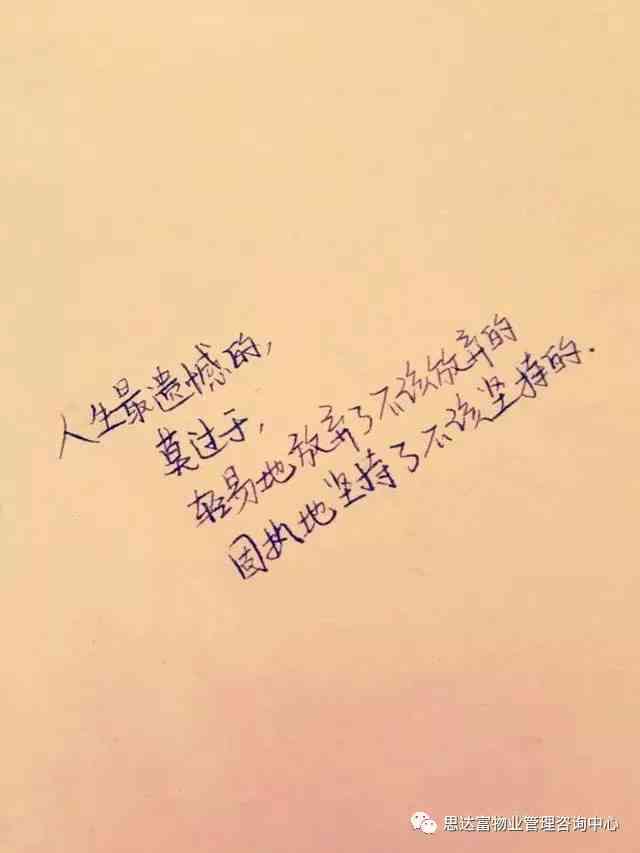 人生最遗憾的,
莫过于,
轻易地放弃了不该放弃的
固执地坚持了不该坚持的.
思达富物业管理咨询中心